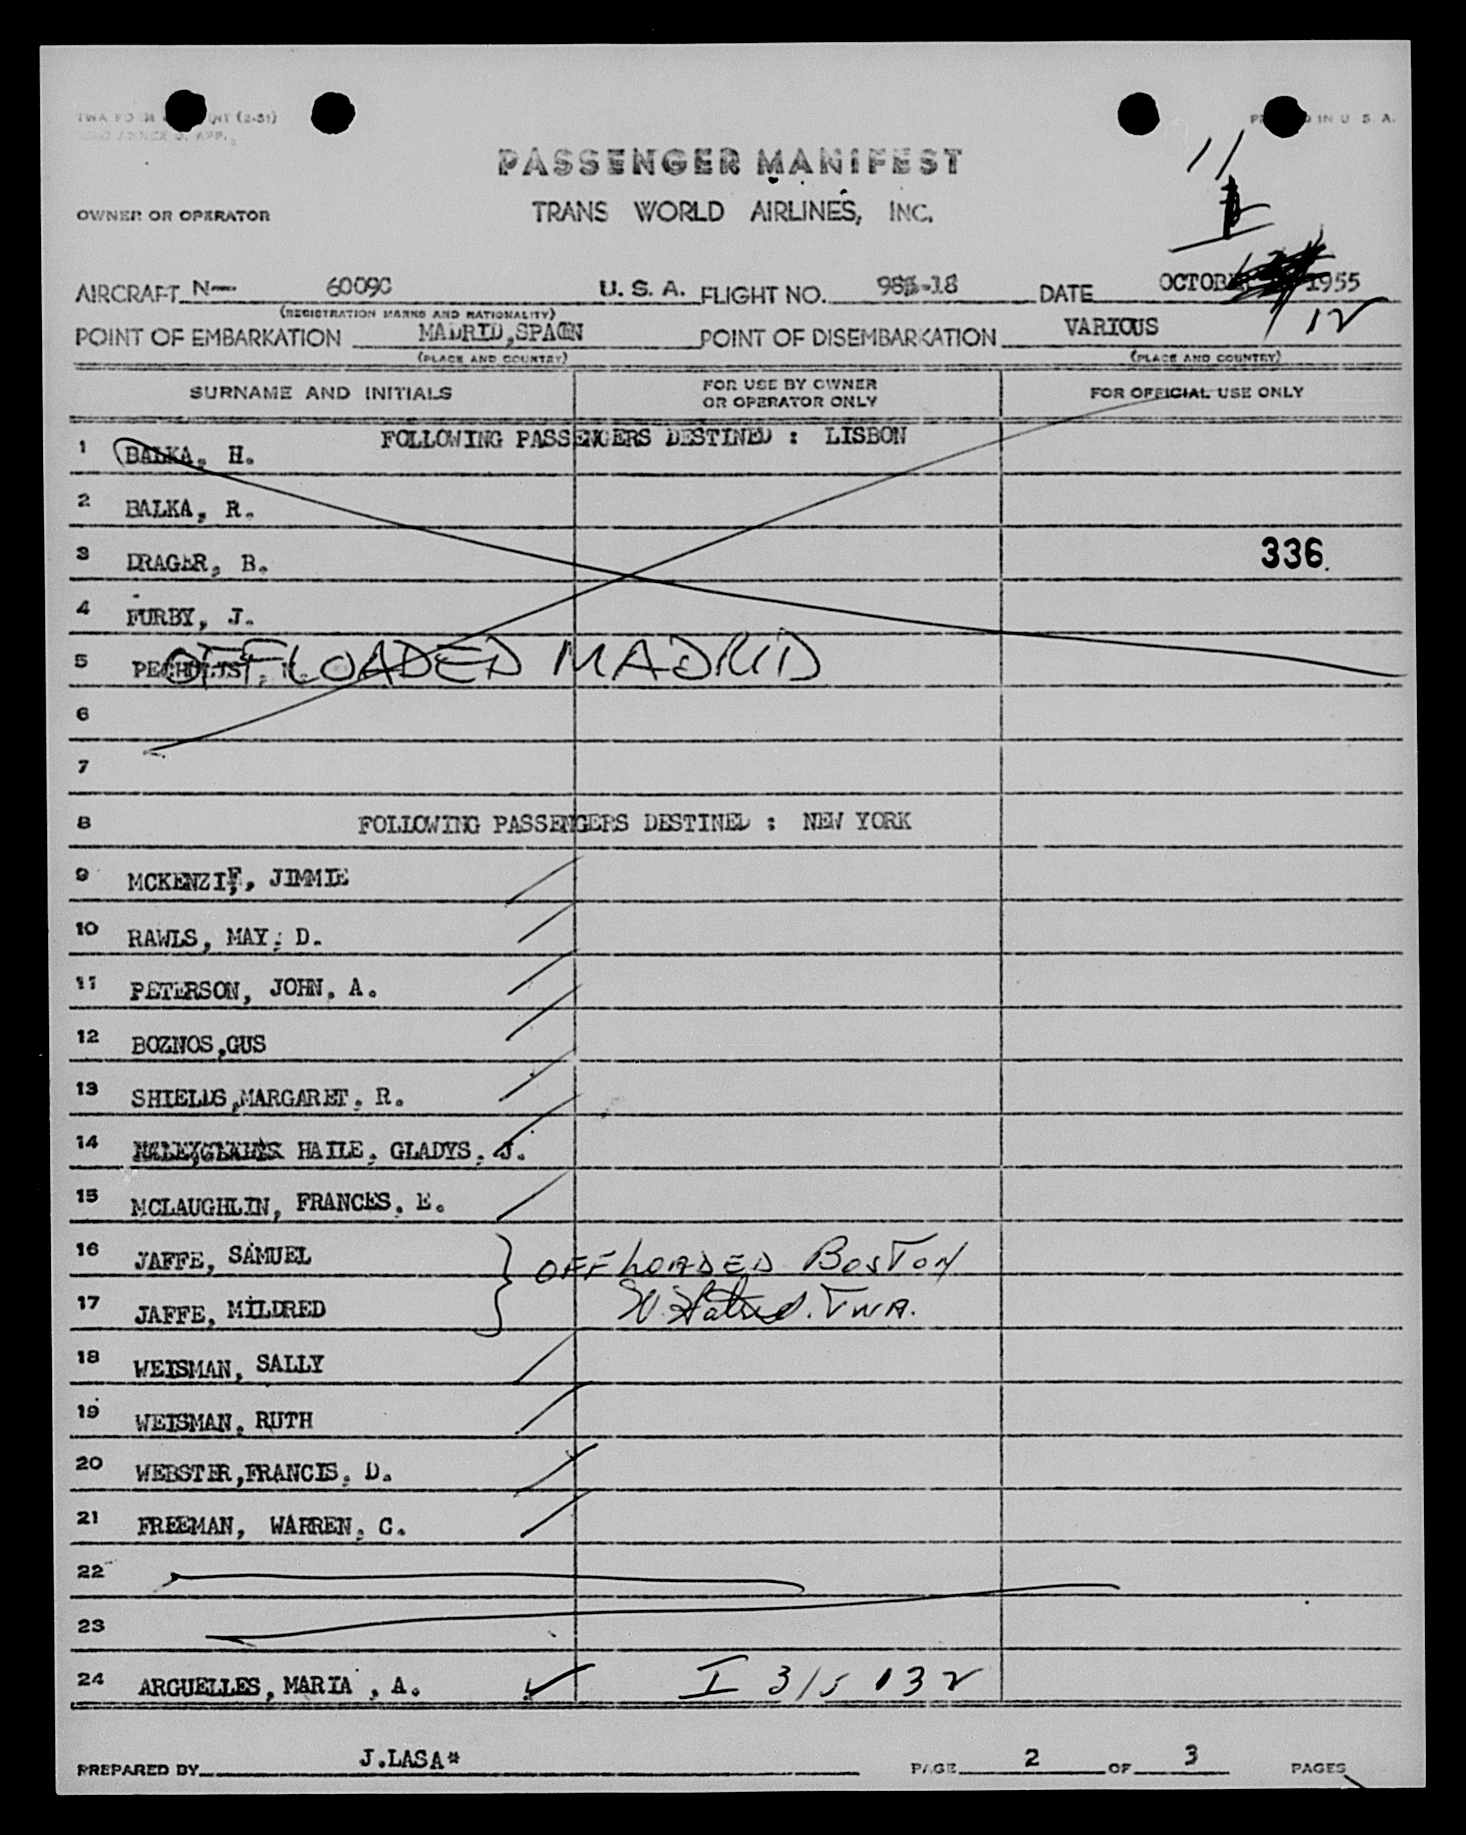 PRINTED IN U. S. A.
PASSENGER MANIFEST
11
OWNER OR OPERATOR TRANS WORLD AIRLINES, INC.
AIRCRAFT N— 6009C U. S. A. FLIGHT NO. -18 DATE OCTOBER 1955
(REGISTRATION MARKS AND NATIONALITY)
12
POINT OF EMBARKATION MADRID,SPAIN POINT OF DISEMBARKATION VARIOUS
(PLACE AND COUNTRY) (PLACE AND COUNTRY)
SURNAME AND INITIALS FOR USE BY OWNER OR OPERATOR ONLY FOR OFFICIAL USE ONLY
FOLLOWING PASSENGERS DESTINED : LISBON
1 BALKA, H.
2 BALKA, R.
3 DRAGER, B. 336
4 FURBY, J.
5 OFFLOADED MADRID
6
7
8 FOLLOWING PASSENGERS DESTINED : NEW YORK
9 MCKENZIE, JIMMIE
10 RAWLS, MAY, D.
11 PETERSON, JOHN, A.
12 BOZNOS,GUS
13 SHIELDS,MARGARET, R.
14 HAILE, GLADYS, J.
15 MCLAUGHLIN, FRANCES, E.
16 JAFFE, SAMUEL OFFLOADED BOSTON
17 JAFFE, MILDRED TWA.
18 WEISMAN, SALLY
19 WEISMAN, RUTH
20 WEBSTER,FRANCIS, D.
21 FREEMAN, WARREN, C.
22
23
24 ARGUELLES, MARIA , A. I 315 132
PREPARED BY J.LASA* PAGE 2 OF 3 PAGES